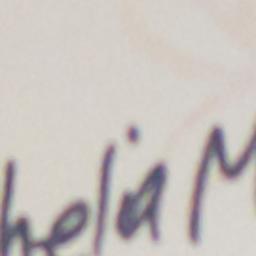 helia M